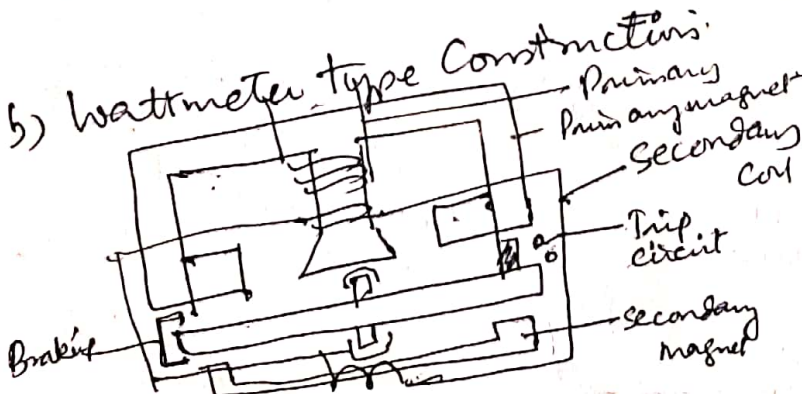 b) Wattmeter type Construction.
Primary
Primary magnet
Secondary
coil
Trip
circuit
Secondary
magnet
Braking